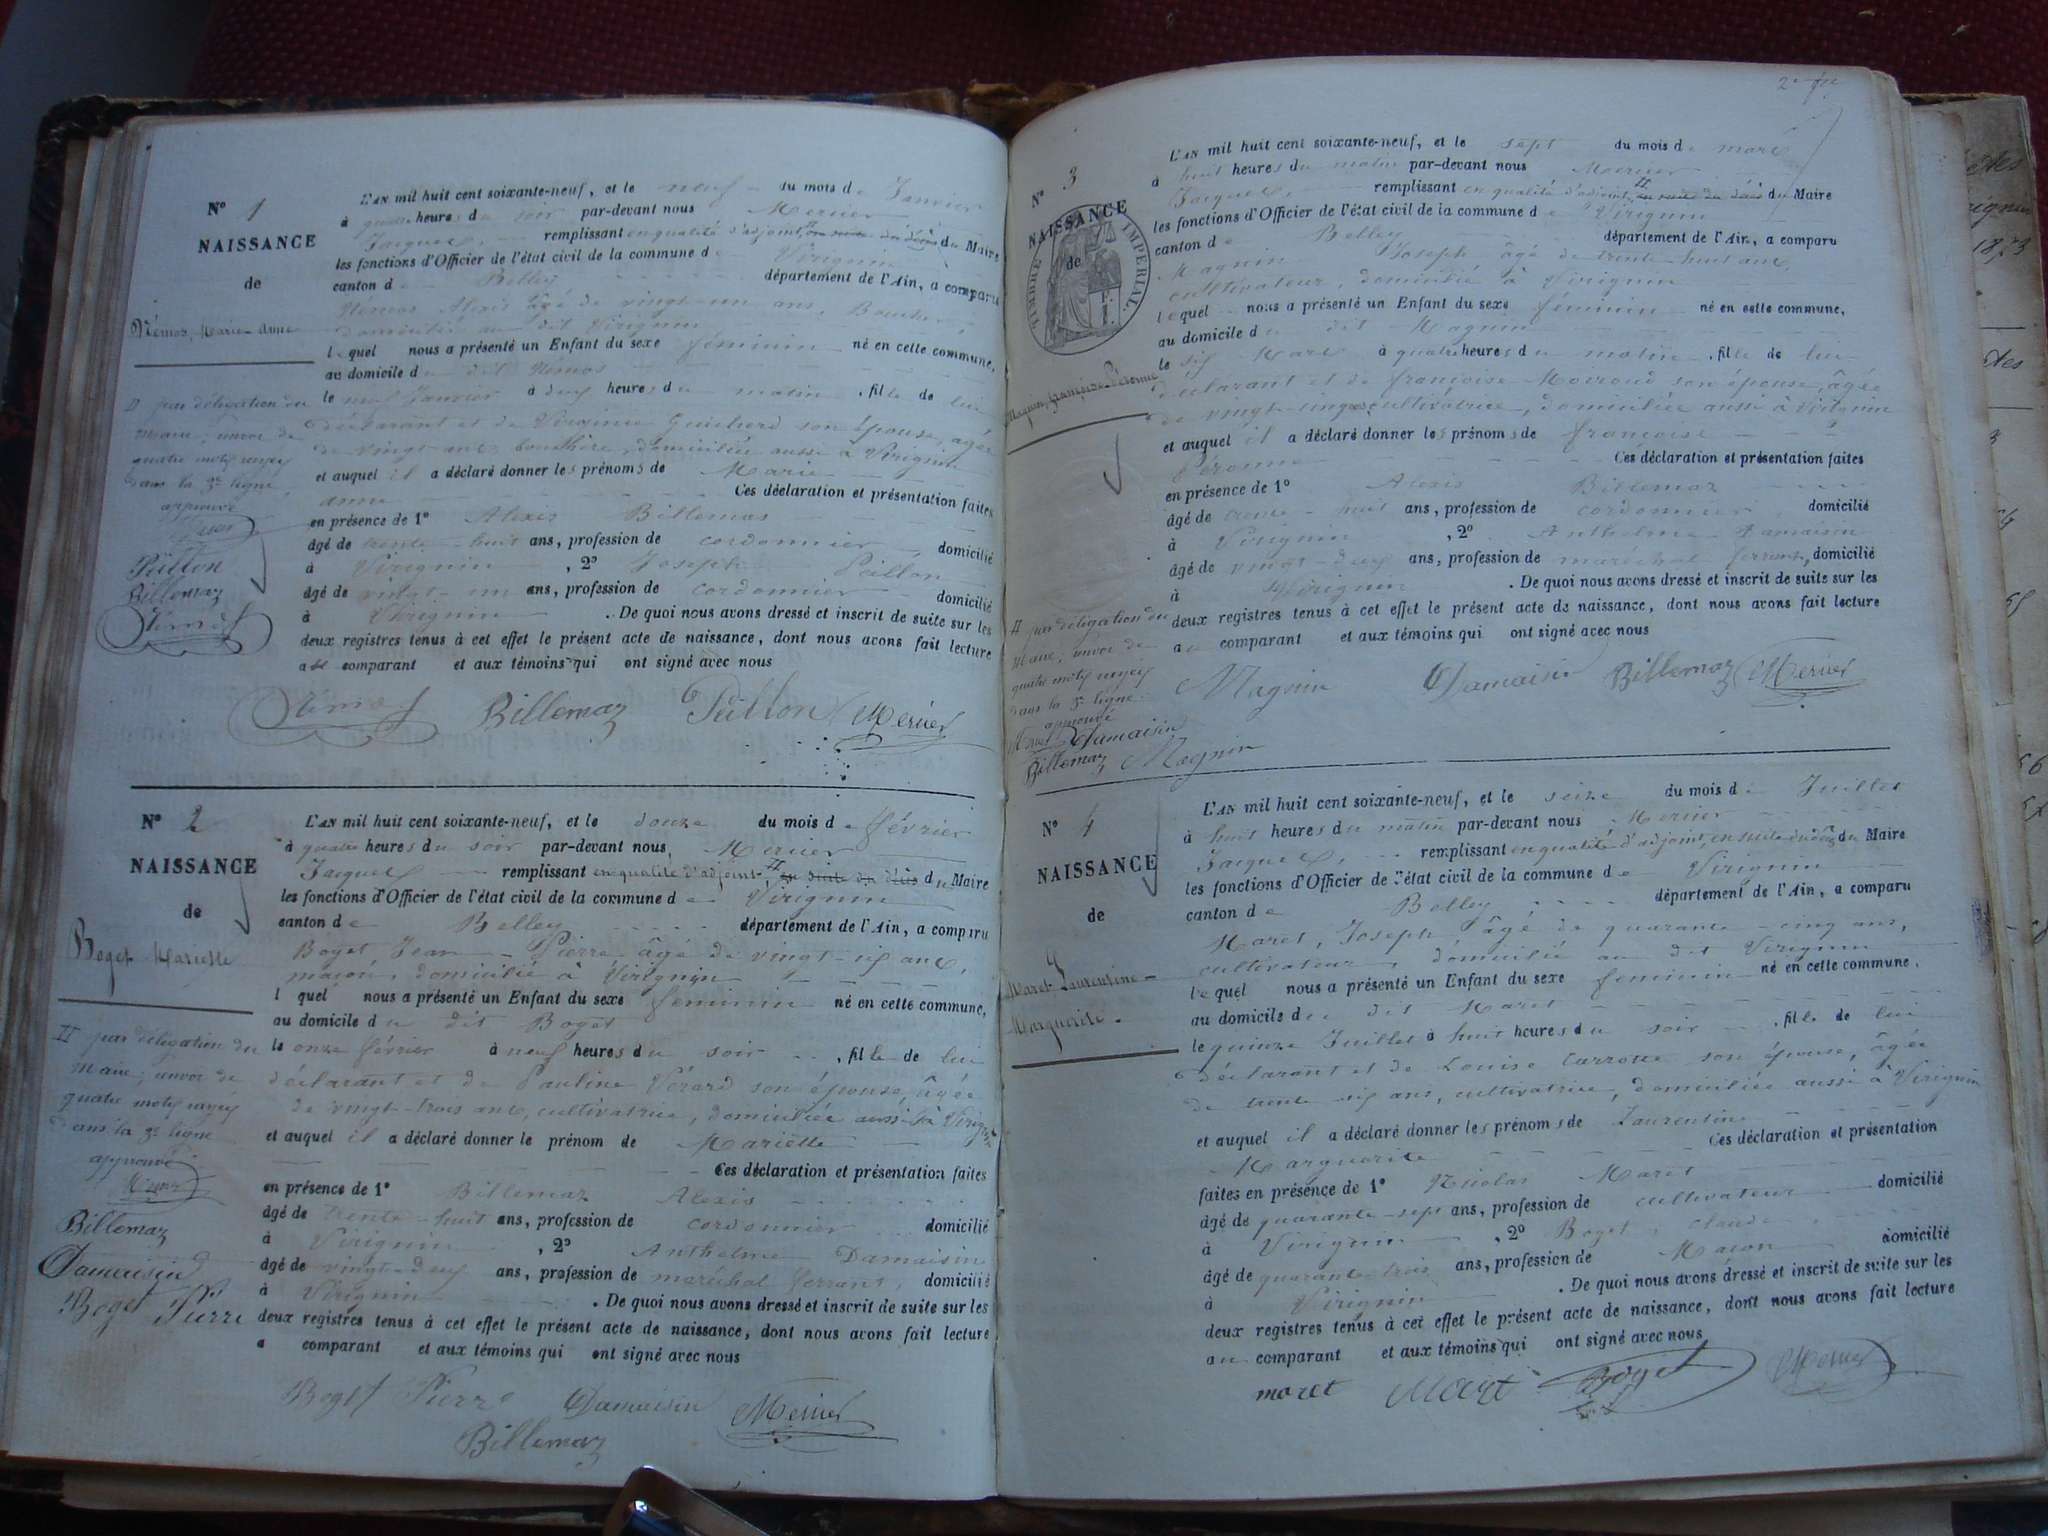 Nº 1
NAISSANCE
de
Némoz, Marie-Anne
L'AN mil huit cent soixante-neuf, et le neuf du mois de Janvier
à quatre heures du soir par-devant nous Mercier
Jacques, remplissant en qualité d'adjoint, en suite du décès du Maire
les fonctions d'Officier de l'état civil de la commune de Virignin
canton de Belley département de l'Ain, a comparu
Némoz Alexis âgé de vingt-un ans,
domicilié au dit Virignin
lequel nous a présenté un Enfant du sexe féminin né en cette commune,
au domicile du dit Némoz
le neuf Janvier à deux heures du matin, fille de lui
déclarant et de Virginie Guicherd son épouse, âgée
de vingt ans, bouchère, domiciliée aussi à Virignin
et auquel il a déclaré donner les prénoms de Marie
anne Ces déclaration et présentation faites
en présence de 1º Alexis Billemaz
âgé de trente-huit ans, profession de cordonnier domicilié
à Virignin, 2º Joseph Peillon
âgé de vingt-un ans, profession de cordonnier domicilié
à Virignin. De quoi nous avons dressé et inscrit de suite sur les
deux registres tenus à cet effet le présent acte de naissance, dont nous avons fait lecture
au comparant et aux témoins qui ont signé avec nous
par délégation du
Maire; renvoi de
quatre mots rayés
dans la 3e ligne,
approuvé
Peillon
Billemaz
Némoz
Némoz Billemaz Peillon Mercier
Nº 2
NAISSANCE
de
Boget Mariette
L'AN mil huit cent soixante-neuf, et le douze du mois de février
à quatre heures du soir par-devant nous, Mercier
Jacques remplissant en qualité d'adjoint en suite du décès du Maire
les fonctions d'Officier de l'état civil de la commune de Virignin
canton de Belley département de l'Ain, a comparu
Boget, Jean-Pierre âgé de vingt-six ans,
maçon, domicilié à Virignin
lequel nous a présenté un Enfant du sexe féminin né en cette commune,
au domicile du dit Boget
le onze février à neuf heures du soir, fille de lui
déclarant et de Pauline Vérard son épouse, âgée
de vingt-trois ans, cultivatrice, domiciliée aussi à Virignin
et auquel il a déclaré donner le prénom de Mariette
Ces déclaration et présentation faites
en présence de 1º Billemaz Alexis
âgé de trente-huit ans, profession de cordonnier domicilié
à Virignin, 2º Anthelme Damaisin
âgé de vingt-deux ans, profession de maréchal ferrant, domicilié
à Virignin. De quoi nous avons dressé et inscrit de suite sur les
deux registres tenus à cet effet le présent acte de naissance, dont nous avons fait lecture
a comparant et aux témoins qui ont signé avec nous
par délégation du
Maire; renvoi de
quatre mots rayés
dans la 3e ligne
approuvé
Mercier
Billemaz
Damaisin
Boget Pierre
Boget Pierre Damaisin Mercier
Billemaz
Nº 3
NAISSANCE
de
TIMBRE IMPERIAL
Magnin, françoise-Péronne
L'AN mil huit cent soixante-neuf, et le sept du mois de mars
à huit heures du matin par-devant nous Mercier
Jacques, remplissant en qualité d'adjoint, en suite du décès du Maire
les fonctions d'Officier de l'état civil de la commune de Virignin
canton de Belley département de l'Ain, a comparu
Magnin Joseph âgé de trente-huit ans,
cultivateur, domicilié à Virignin
lequel nous a présenté un Enfant du sexe féminin né en cette commune,
au domicile du dit Magnin
le six Mars à quatre heures du matin, fille de lui
déclarant et de françoise Moiroud son épouse, âgée
de vingt-cinq, cultivatrice, domiciliée aussi à Virignin
et auquel il a déclaré donner les prénoms de françoise
Péronne Ces déclaration et présentation faites
en présence de 1º Alexis Billemaz
âgé de trente-huit ans, profession de cordonnier, domicilié
à Virignin, 2º Anthelme Damaisin
âgé de vingt-deux ans, profession de maréchal ferrant, domicilié
à Virignin. De quoi nous avons dressé et inscrit de suite sur les
deux registres tenus à cet effet le présent acte de naissance, dont nous avons fait lecture
au comparant et aux témoins qui ont signé avec nous
par délégation du
Maire; renvoi de
quatre mots rayés
dans la 3e ligne
approuvé
Damaisin
Billemaz Magnin
Magnin Damaisin Billemaz Mercier
Nº 4
NAISSANCE
de
Maret Laurentine-
Marguerite.
L'AN mil huit cent soixante-neuf, et le seize du mois de Juillet
à huit heures du matin par-devant nous Mercier
Jacques, remplissant en qualité d'adjoint, en suite du décès du Maire
les fonctions d'Officier de l'état civil de la commune de Virignin
canton de Belley département de l'Ain, a comparu
Maret, Joseph âgé de quarante-cinq ans,
cultivateur, domicilié au dit Virignin
lequel nous a présenté un Enfant du sexe féminin né en cette commune,
au domicile du dit Maret
le quinze Juillet à huit heures du soir, fille de lui
déclarant et de Louise Carrotte son épouse, âgée
de trente six ans, cultivatrice, domiciliée aussi à Virignin
et auquel il a déclaré donner les prénoms de Laurentine
Marguerite Ces déclaration et présentation
faites en présence de 1º Nicolas Maret
âgé de quarante-sept ans, profession de cultivateur domicilié
à Virignin, 2º Boget, Claude,
âgé de quarante-trois ans, profession de Maçon domicilié
à Virignin. De quoi nous avons dressé et inscrit de suite sur les
deux registres tenus à cet effet le présent acte de naissance, dont nous avons fait lecture
au comparant et aux témoins qui ont signé avec nous
maret Maret Boget Mercier